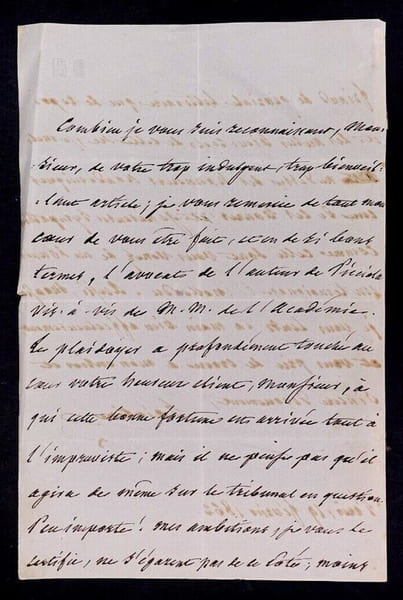 Combien je vous suis reconnaissant, Mon-
sieur, de votre trop indulgent, trop bienveil-
lant article; je vous remercie de tout mon
cœur de vous être fait, et en de si bons
termes, l'avocat de l'auteur de Picciola
vis-à-vis de M.M. de l'Académie.
Le plaidoyer a profondément touché au
cœur votre heureux client, monsieur, à
qui cette bonne fortune est arrivée tout à
l'improviste; mais il ne pense pas qu'il
agira de même sur le tribunal en question.
Peu importe! mes ambitions, je vous le
certifie, ne s'égarent pas de ce côté; moins